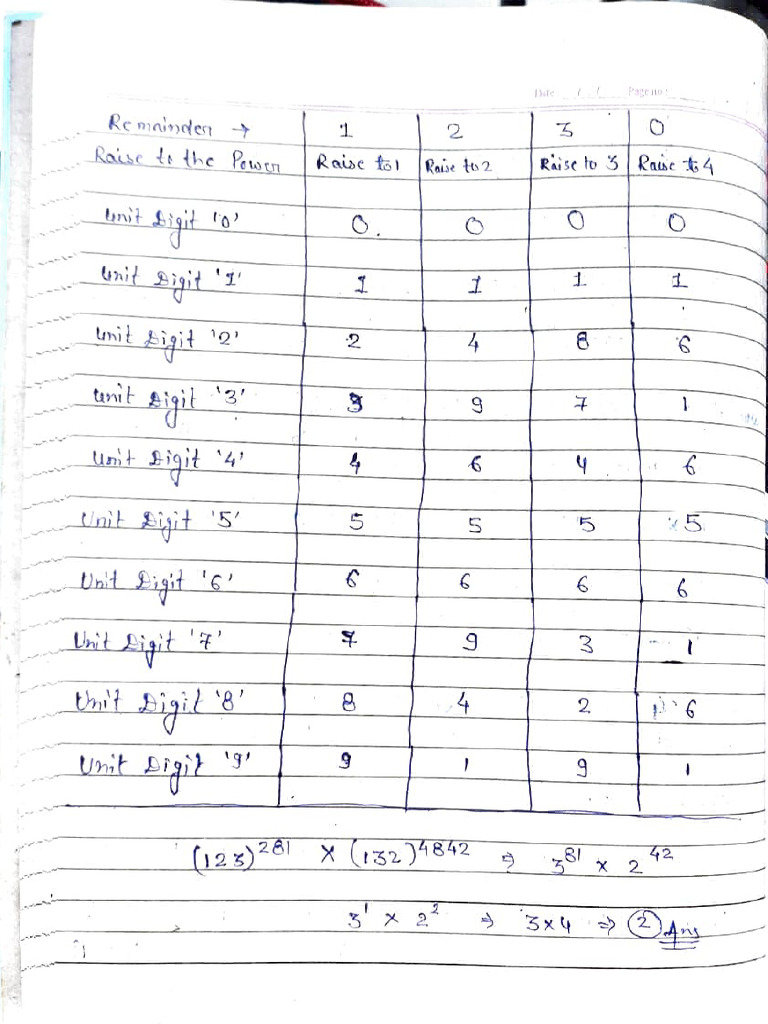 Date / / Page no:
Remainder → 1 2 3 0
Raise to the Power Raise to 1 Raise to 2 Raise to 3 Raise to 4
Unit Digit '0' 0. 0 0 0
Unit Digit '1' 1 1 1 1
Unit Digit '2' 2 4 8 6
Unit Digit '3' 3 9 7 1
Unit Digit '4' 4 6 4 6
Unit Digit '5' 5 5 5 5
Unit Digit '6' 6 6 6 6
Unit Digit '7' 7 9 3 1
Unit Digit '8' 8 4 2 6
Unit Digit '9' 9 1 9 1
(123)²⁸¹ × (132)⁴⁸⁴² ⇒ 3⁸¹ × 2⁴²
3¹ × 2² ⇒ 3×4 ⇒ 2 Ans